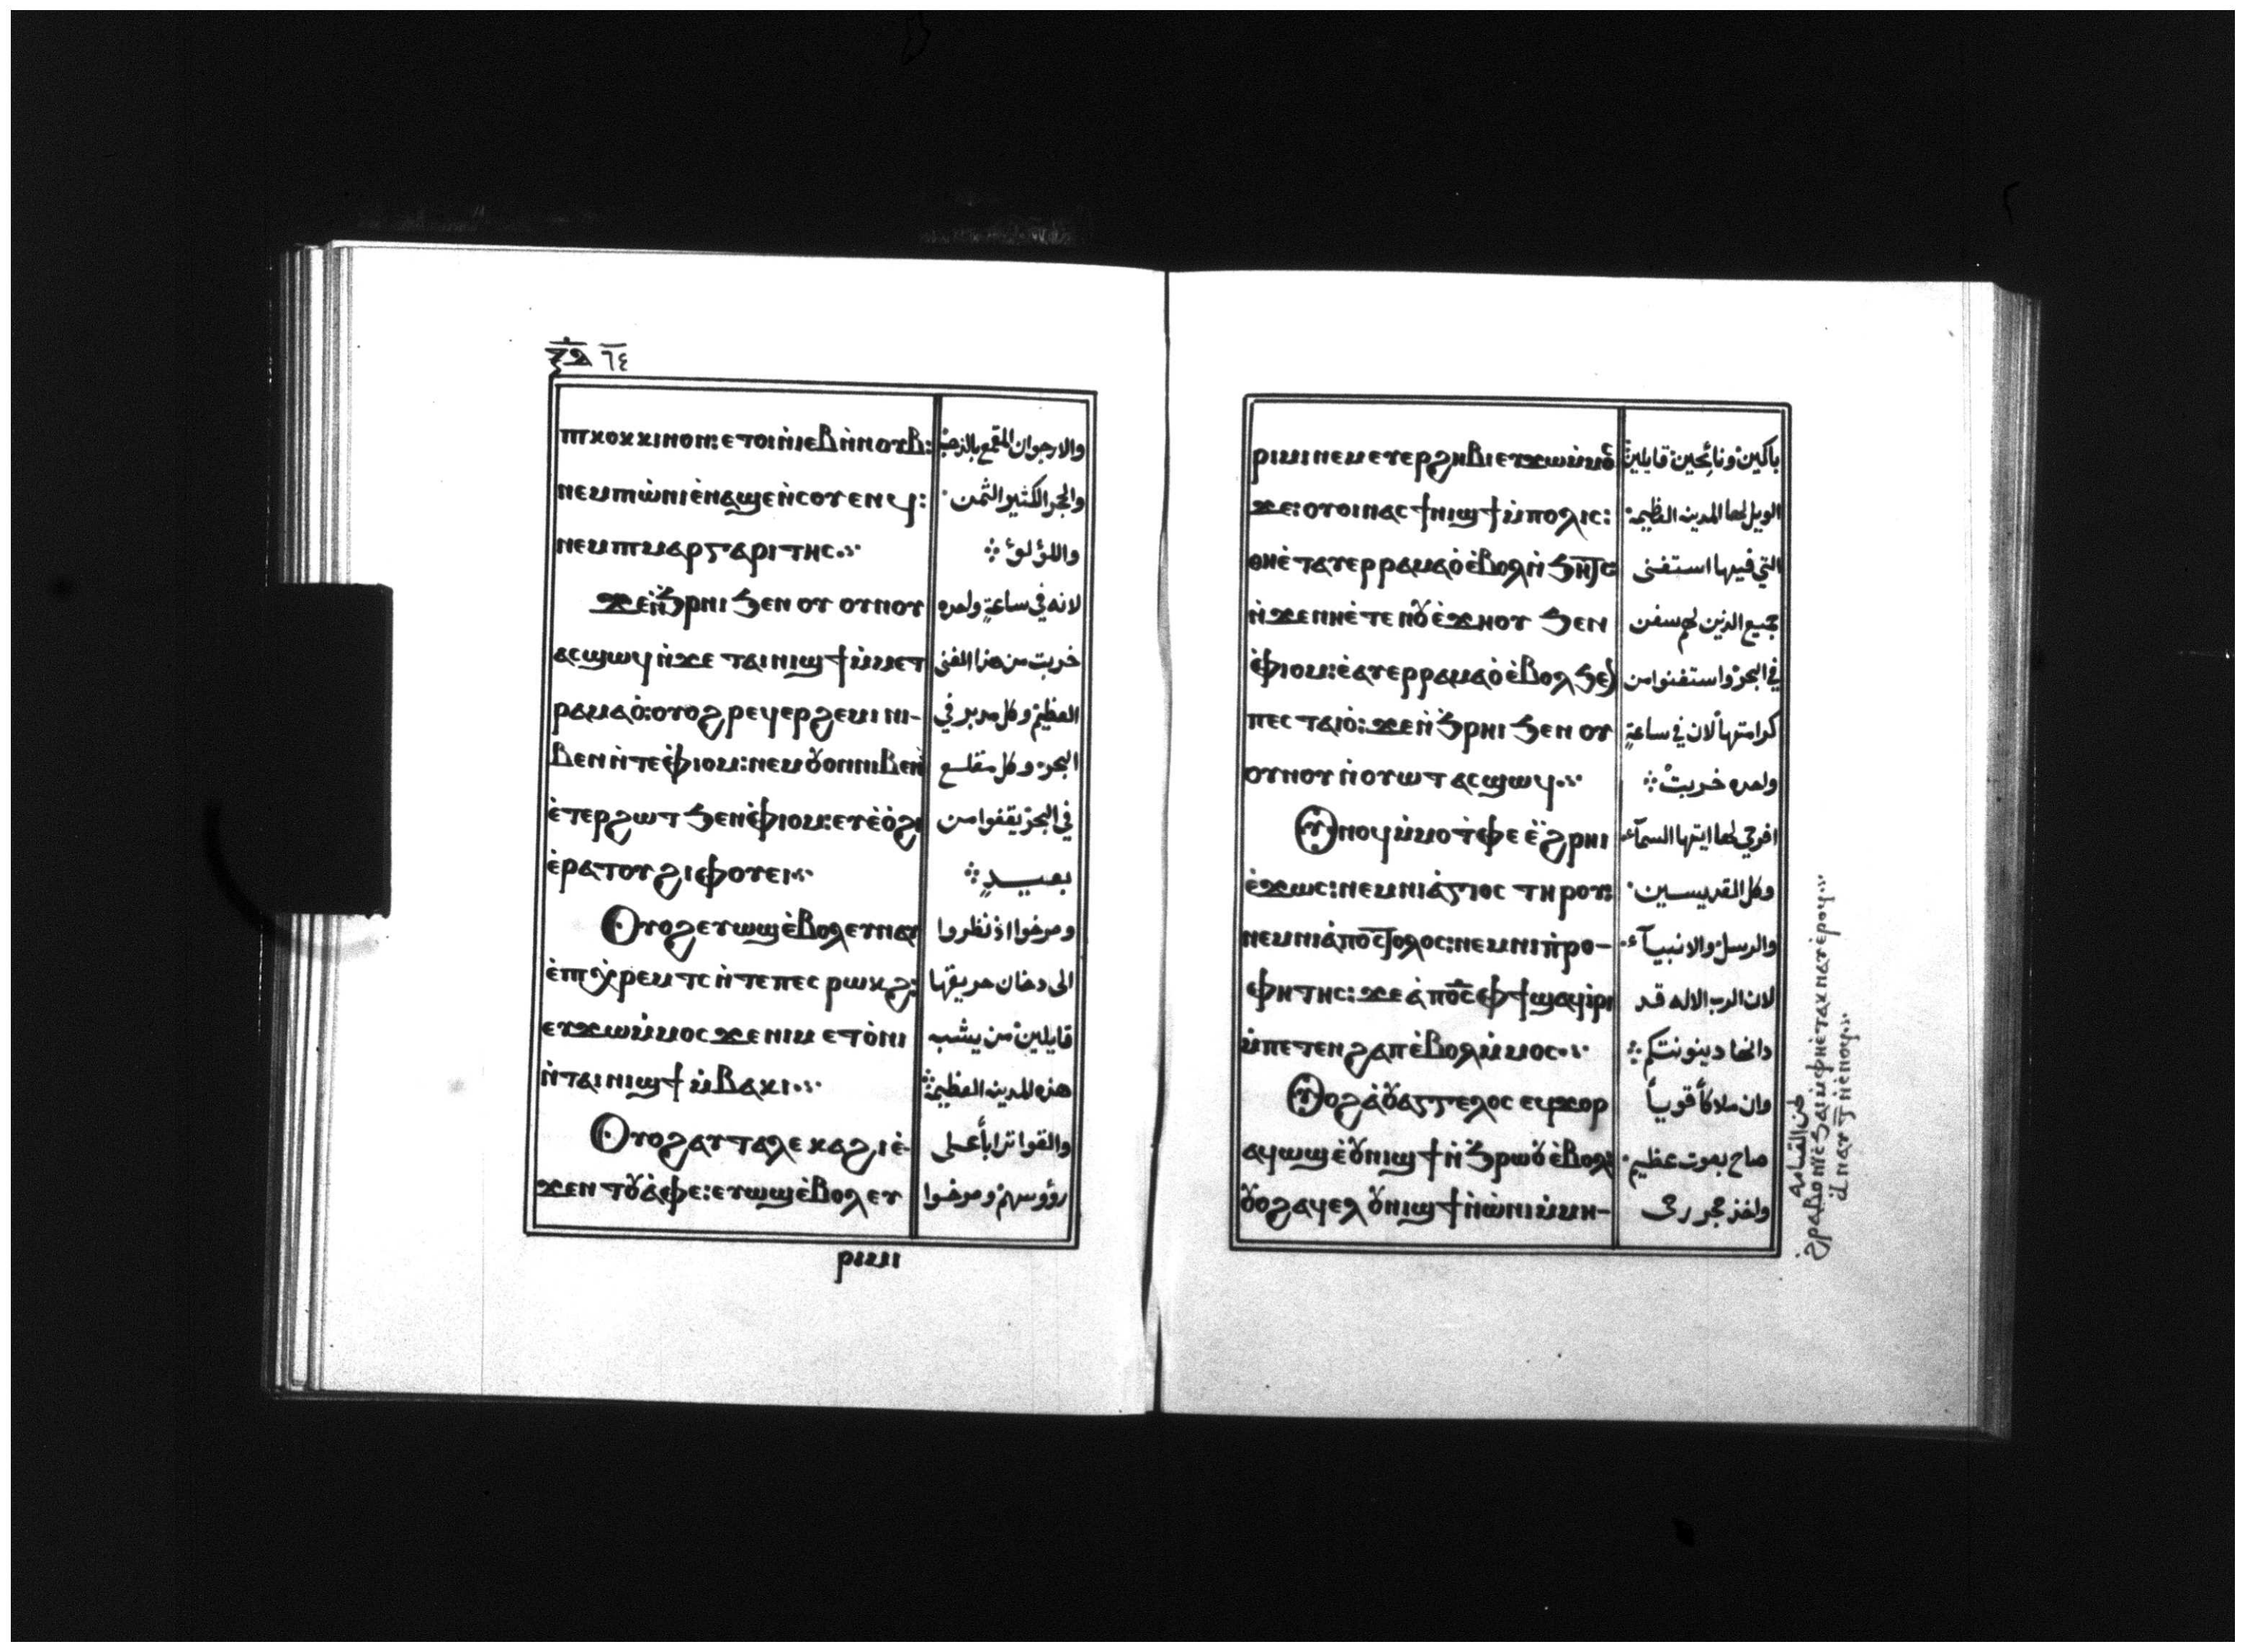 ⲝ̅ⲇ̅ ٦٤
ⲡⲓⲕⲟⲕⲕⲓⲛⲟⲛ: ⲉⲧⲟⲓ ⲛ̀ⲓⲉⲃ ⲛ̀ⲛⲟⲩⲃ: والارجوان المقمع بالذهب
ⲛⲉⲙ ⲡⲓⲱ̀ⲛⲓ ⲉ̀ⲛⲁϣⲉ ⲛ̀ⲥⲟⲩⲉⲛϥ: والحجر الكثير الثمن
ⲛⲉⲙ ⲡⲓⲙⲁⲣⲅⲁⲣⲓⲧⲏⲥ واللؤلؤ
ϫⲉ ⲛ̀ϧⲣⲏⲓ ϧⲉⲛ ⲟⲩ ⲟⲩⲛⲟⲩ لانه في ساعةٍ واحده
ⲁⲥϣⲱϥ ⲛ̀ϫⲉ ⲧⲁⲓⲛⲓϣϯ ⲙ̀ⲙⲉⲧ خربت من هذا الغنى
ⲣⲁⲙⲁⲟ̀: ⲟⲩⲟϩ ⲣⲉϥⲉⲣϩⲉⲙⲓ ⲛⲓ- العظيم وكل مدبر في
ⲃⲉⲛ ⲛ̀ⲧⲉ ⲫ̀ⲓⲟⲙ: ⲛⲉⲙ ⲟⲩⲟⲛ ⲛⲓⲃⲉⲛ البحر وكل مقلع
ⲉ̀ⲧⲉⲣϩⲱⲧ ϧⲉⲛ ⲫ̀ⲓⲟⲙ: ⲉⲩⲉ̀ⲟ̀ϩⲓ في البحر يقفوا من
ⲉ̀ⲣⲁⲧⲟⲩ ϩⲓⲫⲟⲩⲉⲓ بعيدٍ
Ⲟⲩⲟϩ ⲉⲩⲱϣ ⲉ̀ⲃⲟⲗ ⲉⲩⲛⲁⲩ وصرخوا اذ نظروا
ⲉ̀ⲡⲓⲭ̀ⲣⲉⲙⲧⲥ ⲛ̀ⲧⲉ ⲡⲉⲥ ⲣⲱⲕϩ: الى دخان حريقها
ⲉⲩϫⲱ ⲙ̀ⲙⲟⲥ ϫⲉ ⲛⲓⲙ ⲉⲧⲟ̀ⲛⲓ قايلين من يشبه
ⲛ̀ⲧⲁⲓⲛⲓϣϯ ⲙ̀ⲃⲁⲕⲓ هذه المدينه العظيمة
Ⲟⲩⲟϩ ⲁⲩⲧⲁⲗⲉ ⲕⲁϩⲓ ⲉ̀- والقوا ترابأ على
ϫⲉⲛ ⲧⲟⲩⲁ̀ⲫⲉ: ⲉⲩⲱϣ ⲉ̀ⲃⲟⲗ ⲉⲩ رؤوسهم وصرخوا
ⲣⲓⲙⲓ
ⲣⲓⲙⲓ ⲛⲉⲙ ⲉⲩⲉⲣϩⲏⲃⲓ ⲉⲩϫⲱ ⲙ̀ⲙⲟⲥ باكين ونائحين قايلين
ϫⲉ: ⲟⲩⲟⲓ ⲛⲁⲥ ϯⲛⲓϣϯ ⲙ̀ⲡⲟⲗⲓⲥ: الويل لها المدينه العظيمة
ⲑⲏⲉ̀ⲧⲁⲩⲉⲣⲣⲁⲙⲁⲟ̀ ⲉ̀ⲃⲟⲗ ⲛ̀ϧⲏⲧⲥ التي فيها استغنى
ⲛ̀ϫⲉ ⲛⲏⲉ̀ⲧⲉ ⲛ̀ⲟⲩⲉ̀ϫⲏⲟⲩ ϧⲉⲛ جميع الذين لهم سفن
ⲫ̀ⲓⲟⲙ: ⲉ̀ⲁⲩⲉⲣⲣⲁⲙⲁⲟ̀ ⲉ̀ⲃⲟⲗ ϧⲉⲛ في البحر واستغنوا من
ⲡⲉⲥ ⲧⲁⲓⲟ̀: ϫⲉ ⲛ̀ϧⲣⲏⲓ ϧⲉⲛ ⲟⲩ كرامتها لان في ساعةٍ
ⲟⲩⲛⲟⲩ ⲛ̀ⲟⲩⲱⲧ ⲁⲥϣⲱϥ واحده خربت
Ⲟⲩⲛⲟϥ ⲙ̀ⲙⲟ ⲧ̀ⲫⲉ ⲉ̀ϩ̀ⲣⲏⲓ افرحي لها ايتها السمآء
ⲉ̀ϫⲱⲥ: ⲛⲉⲙ ⲛⲓⲁ̀ⲅⲓⲟⲥ ⲧⲏⲣⲟⲩ: وكل القديسين
ⲛⲉⲙ ⲛⲓⲁ̀ⲡⲟⲥⲧⲟⲗⲟⲥ: ⲛⲉⲙ ⲛⲓⲡ̀ⲣⲟ- والرسل والانبيآء
ⲫⲏⲧⲏⲥ: ϫⲉ ⲁ̀ⲡ̅ⲟ̅ⲥ̅ ⲫϯ ϣⲁϥⲓ̀ⲣⲓ لان الرب الاله قد
ⲙ̀ⲡⲉⲧⲉⲛϩⲁⲡ ⲉ̀ⲃⲟⲗ ⲙ̀ⲙⲟⲥ دانها دينونتكم
Ⲟⲩⲟϩ ⲁ̀ⲟⲩⲁⲅⲅⲉⲗⲟⲥ ⲉϥϫⲟⲣ وان ملاكأ قويأ
ⲁϥⲱϣ ⲉ̀ⲟⲩⲛⲓϣϯ ⲛ̀ϧⲣⲱⲟⲩ ⲉ̀ⲃⲟⲗ: صاح بصوت عظيم
ⲟⲩⲟϩ ⲁϥⲉⲗ ⲟⲩⲛⲓϣϯ ⲛ̀ⲱ̀ⲛⲓ ⲙ̀ⲙⲏ- واخذ حجر رحى